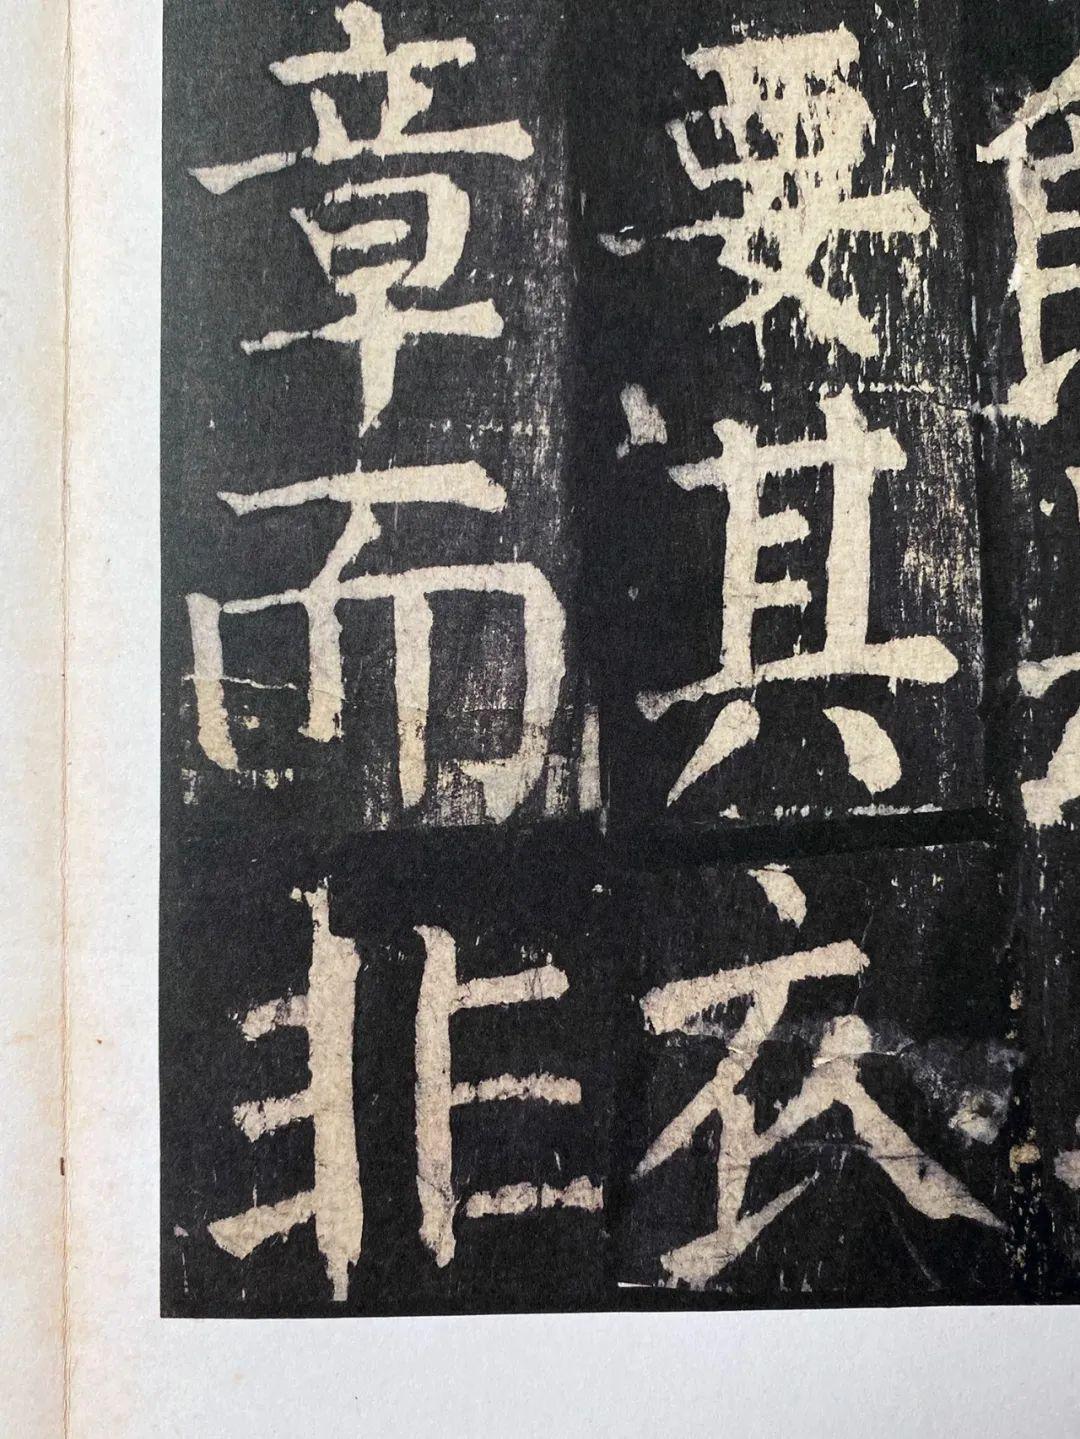 要其衣
章而非